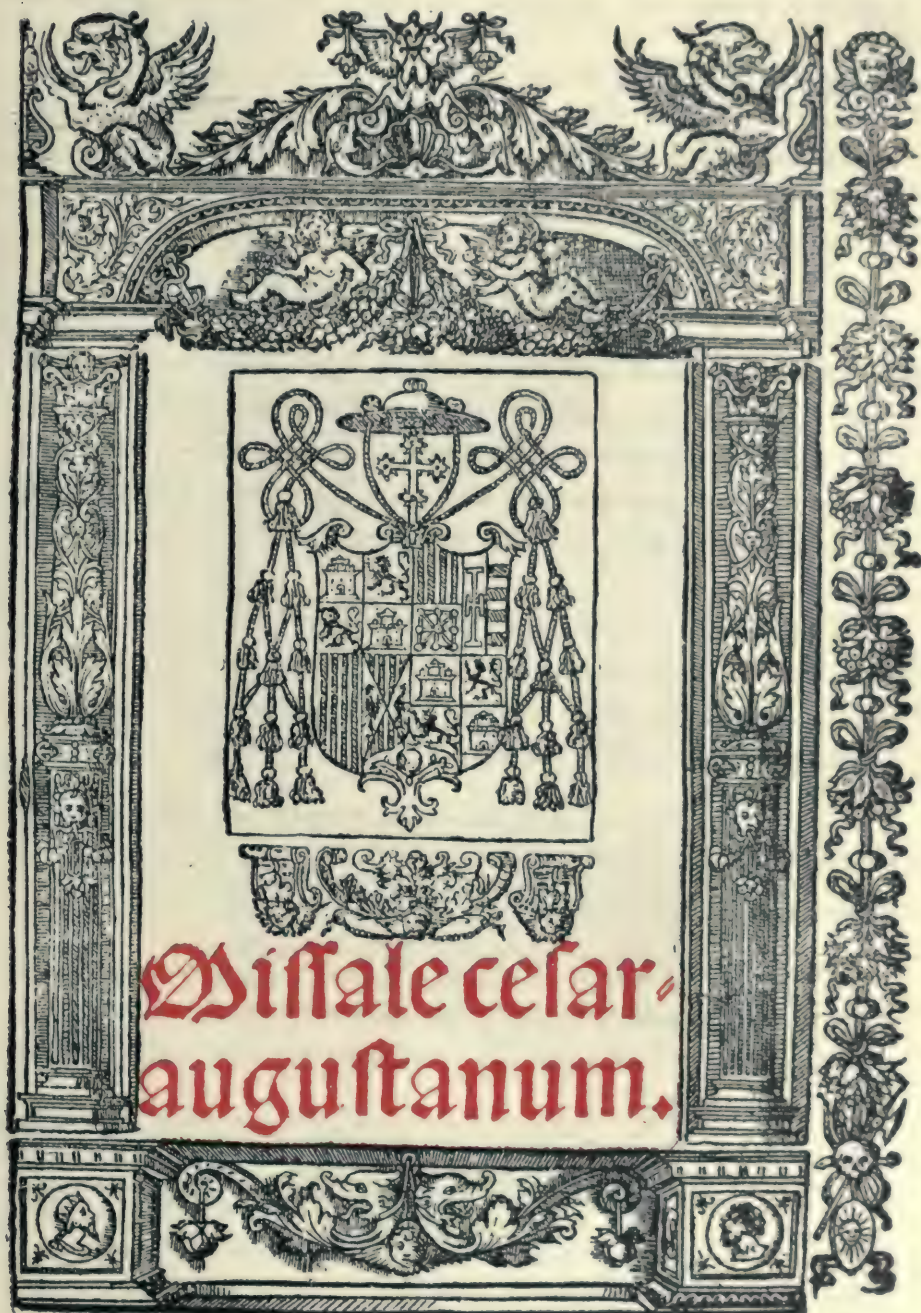 Miſſale ceſar-
auguſtanum.